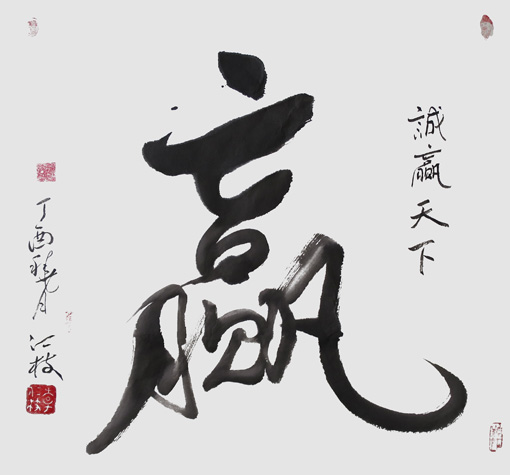 誠贏天下
贏
丁酉秋月 江枝